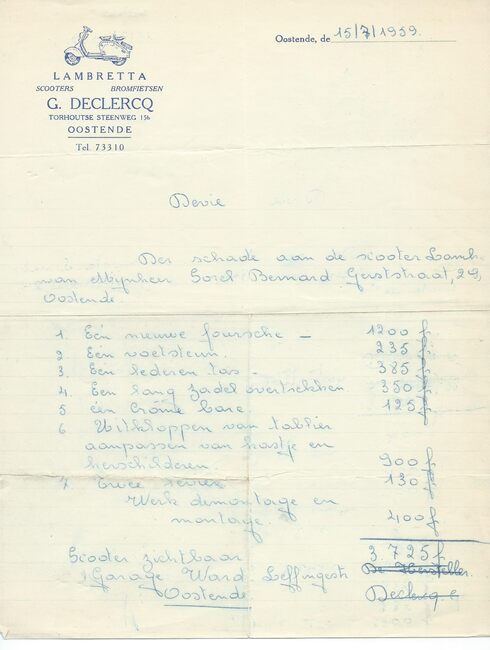 Oostende, de 15/7/1959.
LAMBRETTA
SCOOTERS BROMFIETSEN
G. DECLERCQ
TORHOUTSE STEENWEG 154
OOSTENDE
Tel. 73310
Devie
Der schade aan de scooter Lamb
van Mijnheer Sorel Bernard Gerststraat, 29,
Oostende.
1. Eén nieuwe foursche – 1200 f
2 Eén voetsteun. 235
3. Een lederen tas - 385
4. Een lang zadel overtrekken 350
5 één chrome bare. 125
6 Uitkloppen van tablier
aanpassen van kastje en
herschilderen. 900 f
7 Twee 130 f
Werk demontage en
montage. 400 f
3.725 f
Scooter zichtbaar De Hersteller
Garage Ward Leffingestr Declercq
Oostende